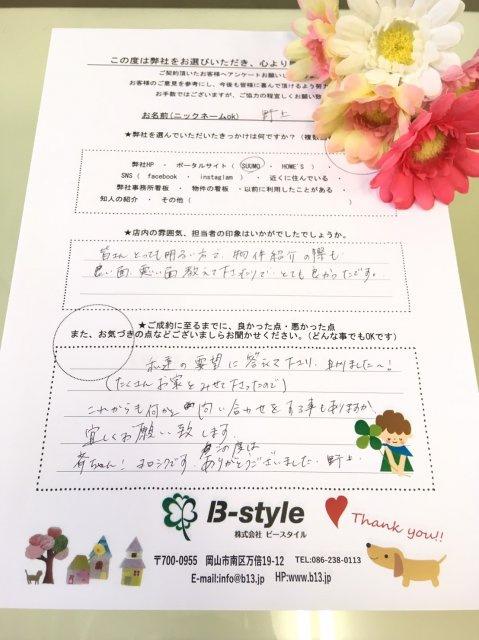 この度は弊社をお選びいただき、心より
ご契約頂いたお客様へアンケートお願いし
お客様のご意見を参考にし、今後も皆様に喜んで頂けるよう努力
お手数ではございますが、ご協力の程宜しくお願い致
お名前(ニックネームok) 野上
★弊社を選んでいただいたきっかけは何ですか？(複数
弊社HP ・ ポータルサイト ( SUUMO ・ HOME'S )
SNS ( facebook ・ instaglam ) ・ 近くに住んでいる ・
弊社事務所看板 ・ 物件の看板 ・以前に利用したことがある ・
知人の紹介 ・ その他 (
★店内の雰囲気、担当者の印象はいかがでしたでしょうか。
皆さんとっても明るい方で、物件紹介の際も
良い面、悪い面教えて下さったりで、とても良かったです。
★ご成約に至るまでに、良かった点・悪かった点
また、お気づきの点などございましらお聞かせください。(どんな事でもOKです)
私達の要望に答えて下さり、助りました〜！
(たくさんお家をみせて下さったので)
これからも何かと問い合わせをする事もありますが、
宜しくお願い致します。
この度は
ヨロシクです。ありがとうございました。野上
B-style
株式会社 ビースタイル
Thank you!!
〒700-0955 岡山市南区万倍19-12 TEL:086-238-0113
E-mail:info@b13.jp HP:www.b13.jp